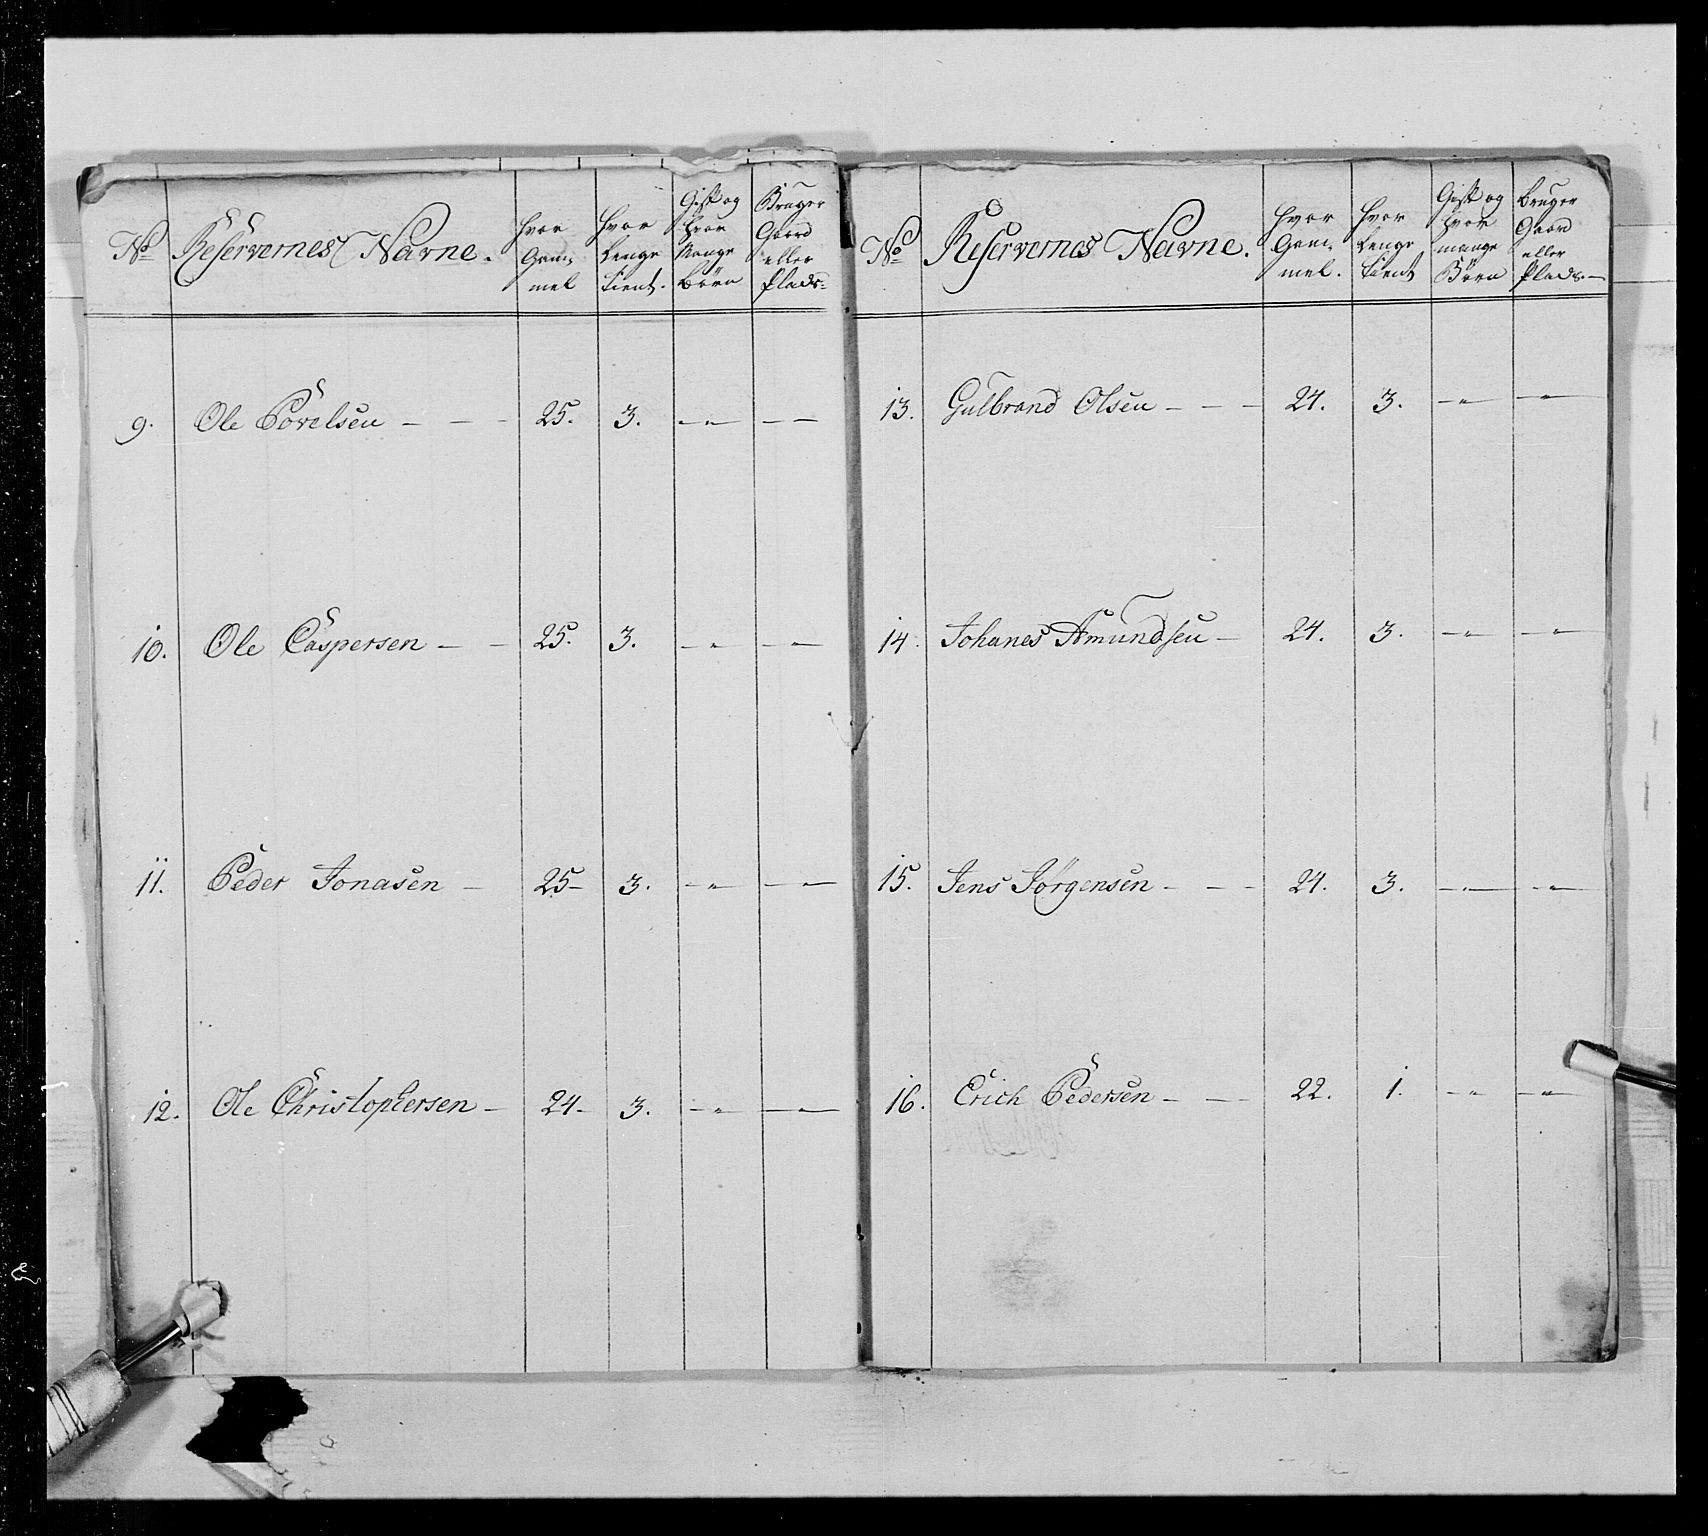 No Reservernes Navne. hvor Gam, mel hvor Lenge tient. Gift og hvor Mange börn Bruger Gaard eller Plads
9. Ole Povelsen — — — 25. 3. —„— — —
10. Ole Caspersen — — 25. 3. —„— —„—
11. Peder Jonasen — 25— 3. —„— —„—
12. Ole Christophersen — 24— 3. —„— —„—
No Reservernes Navne. hvor Gam, mel. hvor Lenge tient Gift og hvor mange Börn bruger Gaard eller Plads. —
13. Gulbrand Olsen — — — 24. 3. —„— —„—
14. Johanes Amundsen — 24. 3. —„— —„—
15. Jens Jörgensen — — — 24. 3. —„— —„—
16. Erich Pedersen — — — 22. 1. —„— —„—